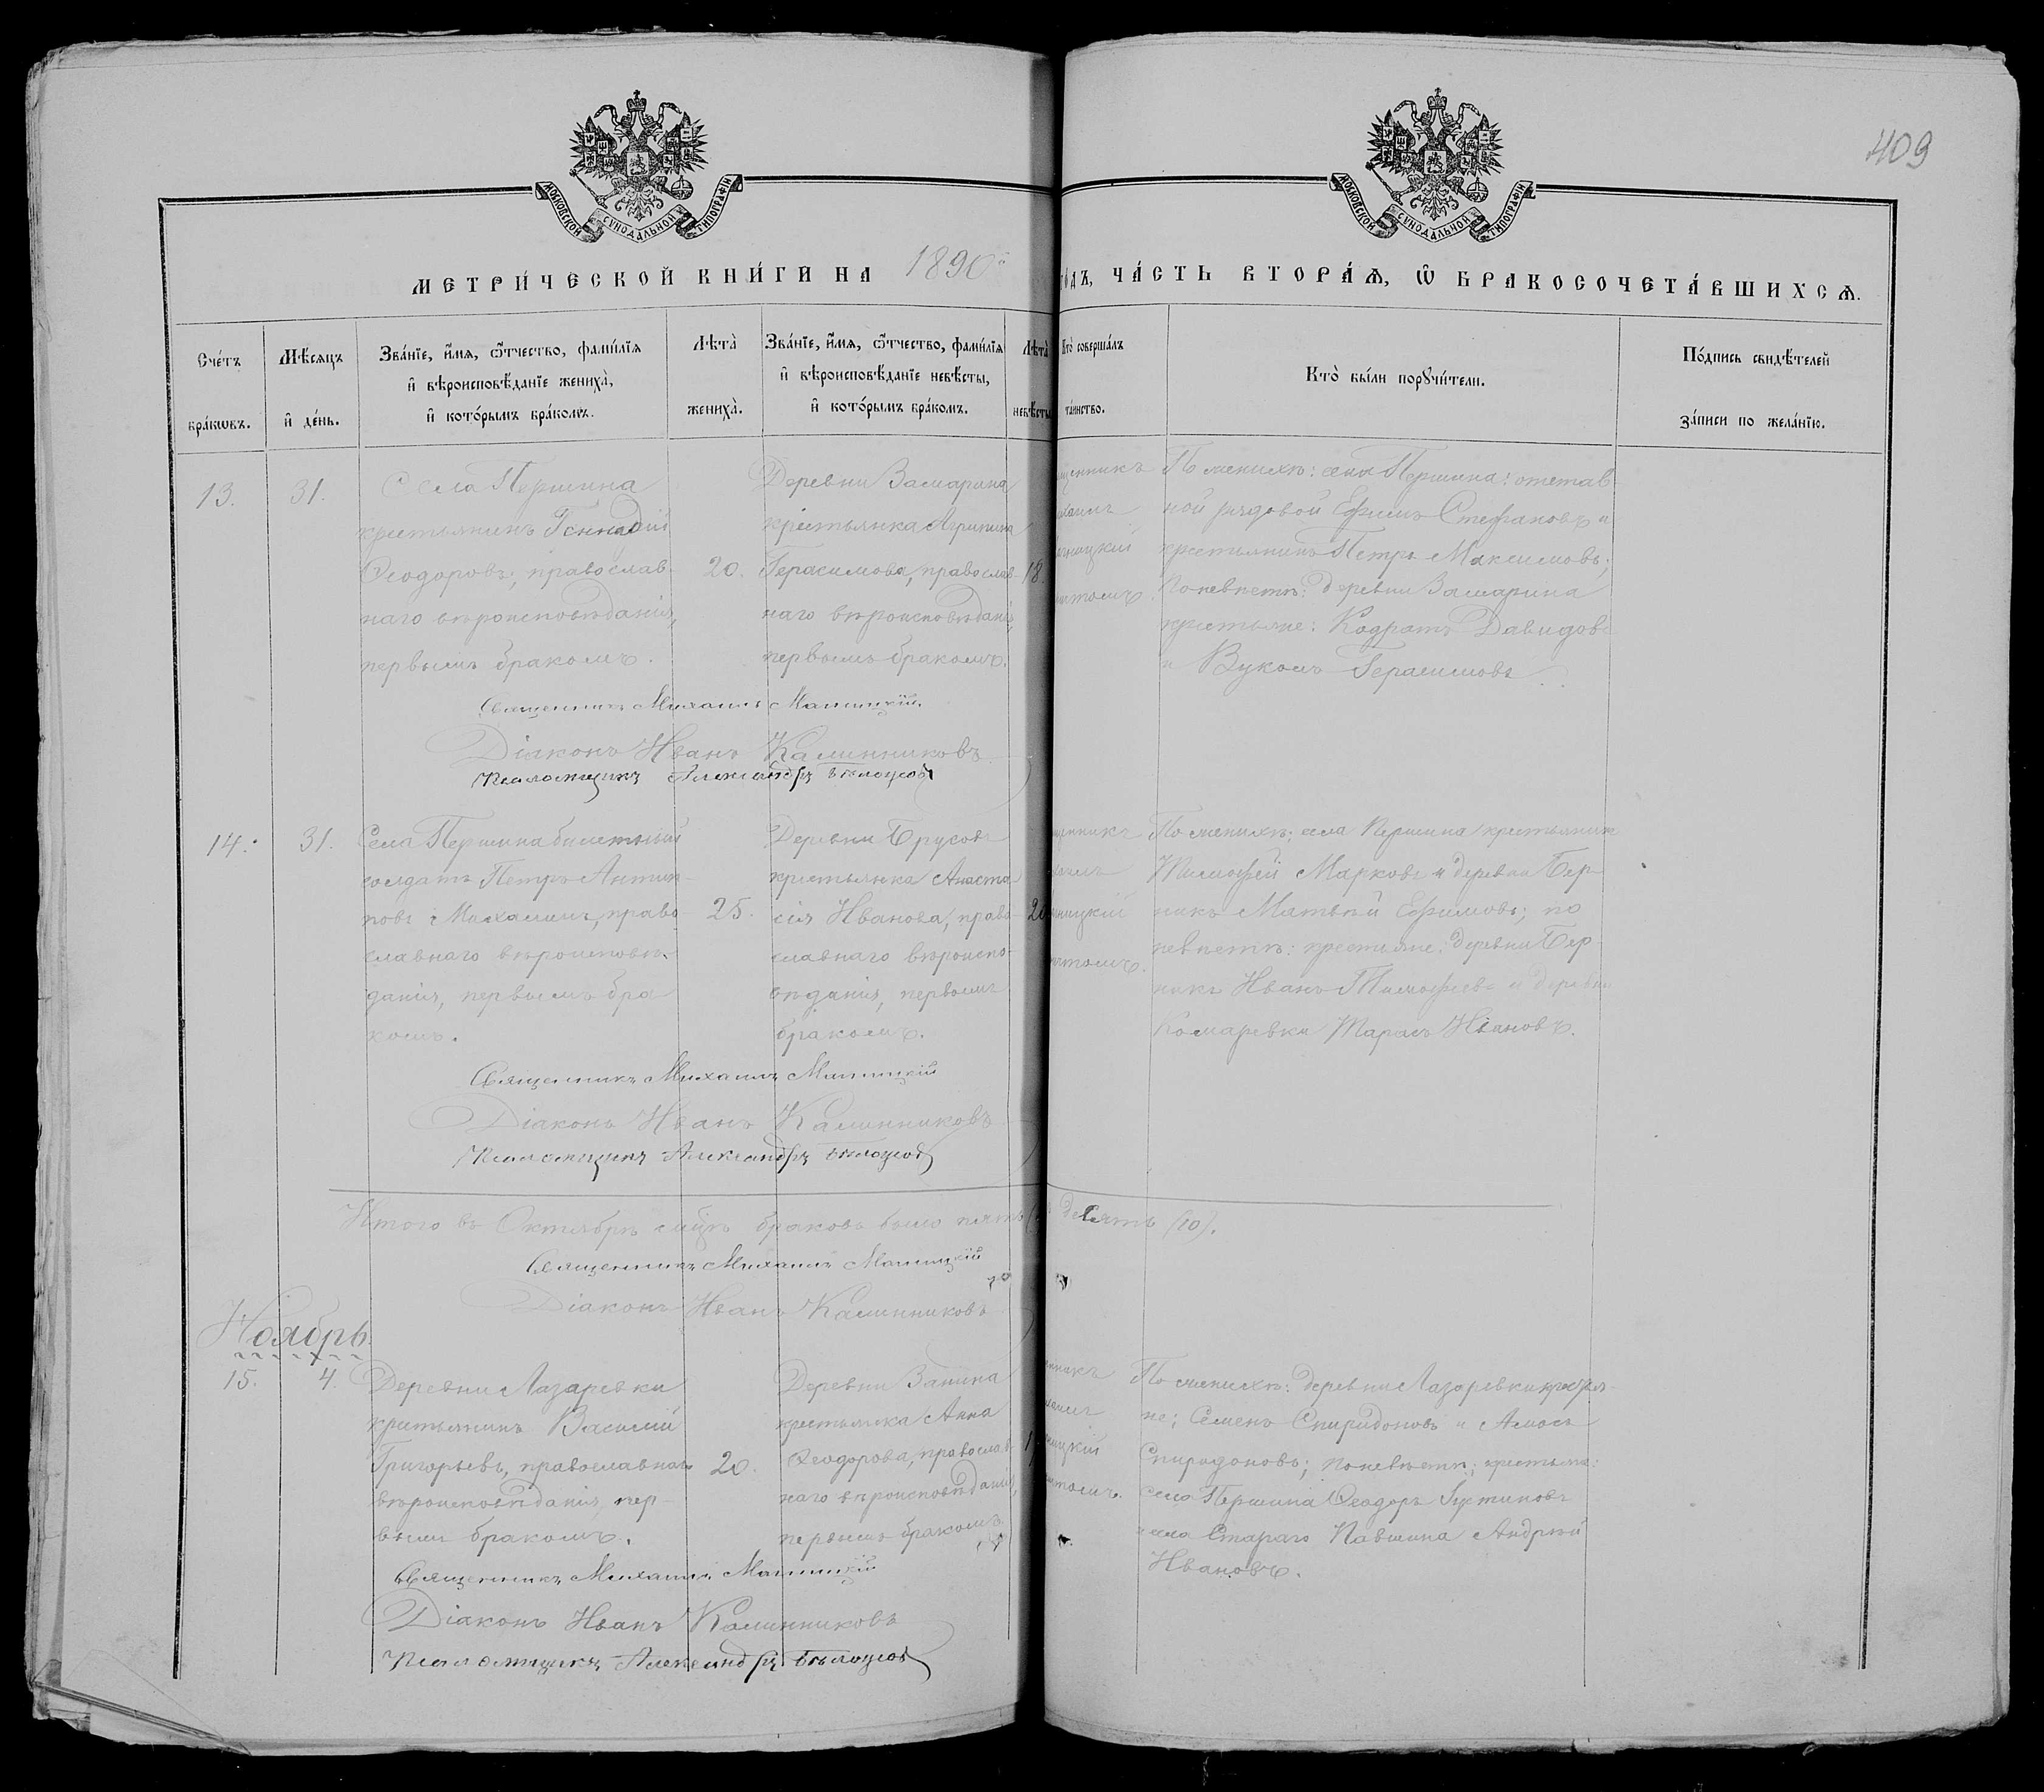 409
МОСКОВСКОЙ СѴНОДАЛЬНОЙ ТИПОГРАФІИ
МОСКОВСКОЙ СѴНОДАЛЬНОЙ ТИПОГРАФІИ
МЕТРИ́ЧЕСКОЙ КНИ́ГИ НА 1890й ГО́ДЪ, ЧА́СТЬ ВТОРА́Ѧ, Ѡ БРАКОСОЧЕТА́ВШИХСѦ.
Сче́тъ бра́кѡвъ.
Мѣ́сяцъ и де́нь.
Зва́нїе, и́мѧ, ѻ҆́тчество, фами́лїѧ
и вѣроисповѣ́данїе жениха̀,
и кото́рымъ бра́комъ.
Лѣта̀ жениха̀.
Зва́нїе, и́мѧ, ѻ҆́тчество, фами́лїѧ
и вѣроисповѣ́данїе невѣ́сты,
и кото́рымъ бра́комъ.
Лѣта̀ невѣ́сты
Кто̀ соверша́лъ
та́инство.
Кто̀ бы́ли порꙋчи́тели.
По́дпись свидѣ́телей
за́писи по жела́нїю.
13.
31.
Села Першина
крестьянинъ Геннадій
Ѳеодоровъ, православ-
наго вѣроисповѣданія,
первымъ бракомъ.
20.
Деревни Замарина
крестьянка Агрипина
Герасимова, православ-
наго вѣроисповѣданія,
первымъ бракомъ.
18.
По женихѣ: села Першина: отстав-
ной рядовой Ефимъ Стефановъ и
крестьянинъ Петръ Максимовъ;
по невѣстѣ: деревни Замарина
крестьяне: Кодратъ Давидовъ
и Вуколъ Герасимовъ.
Священникъ Михаилъ
Діаконъ Иванъ Калинниковъ
Псаломщикъ Александръ
14.
31.
Села Першина билетный
солдатъ Петръ Антип-
повъ Михалинъ, право-
славнаго вѣроисповѣ-
данія, первымъ бра-
комъ.
25.
Деревни Брусовъ
крестьянка Анаста-
сія Иванова, право-
славнаго вѣроиспо-
вѣданія, первымъ
бракомъ.
По женихѣ: села Першина крестьянинъ
Тимофей Марковъ и деревни Бер-
никъ Матвѣй Ефимовъ; по
невѣстѣ: крестьяне: деревни Бер-
никъ Иванъ Тимофеевъ и деревни
Комаревки Тарасъ Ивановъ.
Священникъ Михаилъ
Діаконъ Иванъ Калинниковъ
Псаломщикъ Александръ
Итого въ Октябрѣ мцѣ браковъ было пять десять (10).
Священникъ Михаилъ
Діаконъ Иванъ Калинниковъ
Ноябрь.
15.
4.
Деревни Лазаревки
крестьянинъ Василій
Григорьевъ, православнаго
вѣроисповѣданія, пер-
вымъ бракомъ.
20.
Деревни Занина
крестьянка Анна
Ѳеодорова, православ-
наго вѣроисповѣданія,
первымъ бракомъ
По женихѣ: деревни Лазаревки крестья-
не; Семенъ Спиридоновъ и Амосъ
Спиридоновъ; по невѣстѣ; крестьяне:
села Першина Ѳеодоръ Іустиновъ
села Стараго Павшина Андрей
Ивановъ.
Священникъ Михаилъ
Діаконъ Иванъ Калинниковъ
Псаломщикъ Александръ